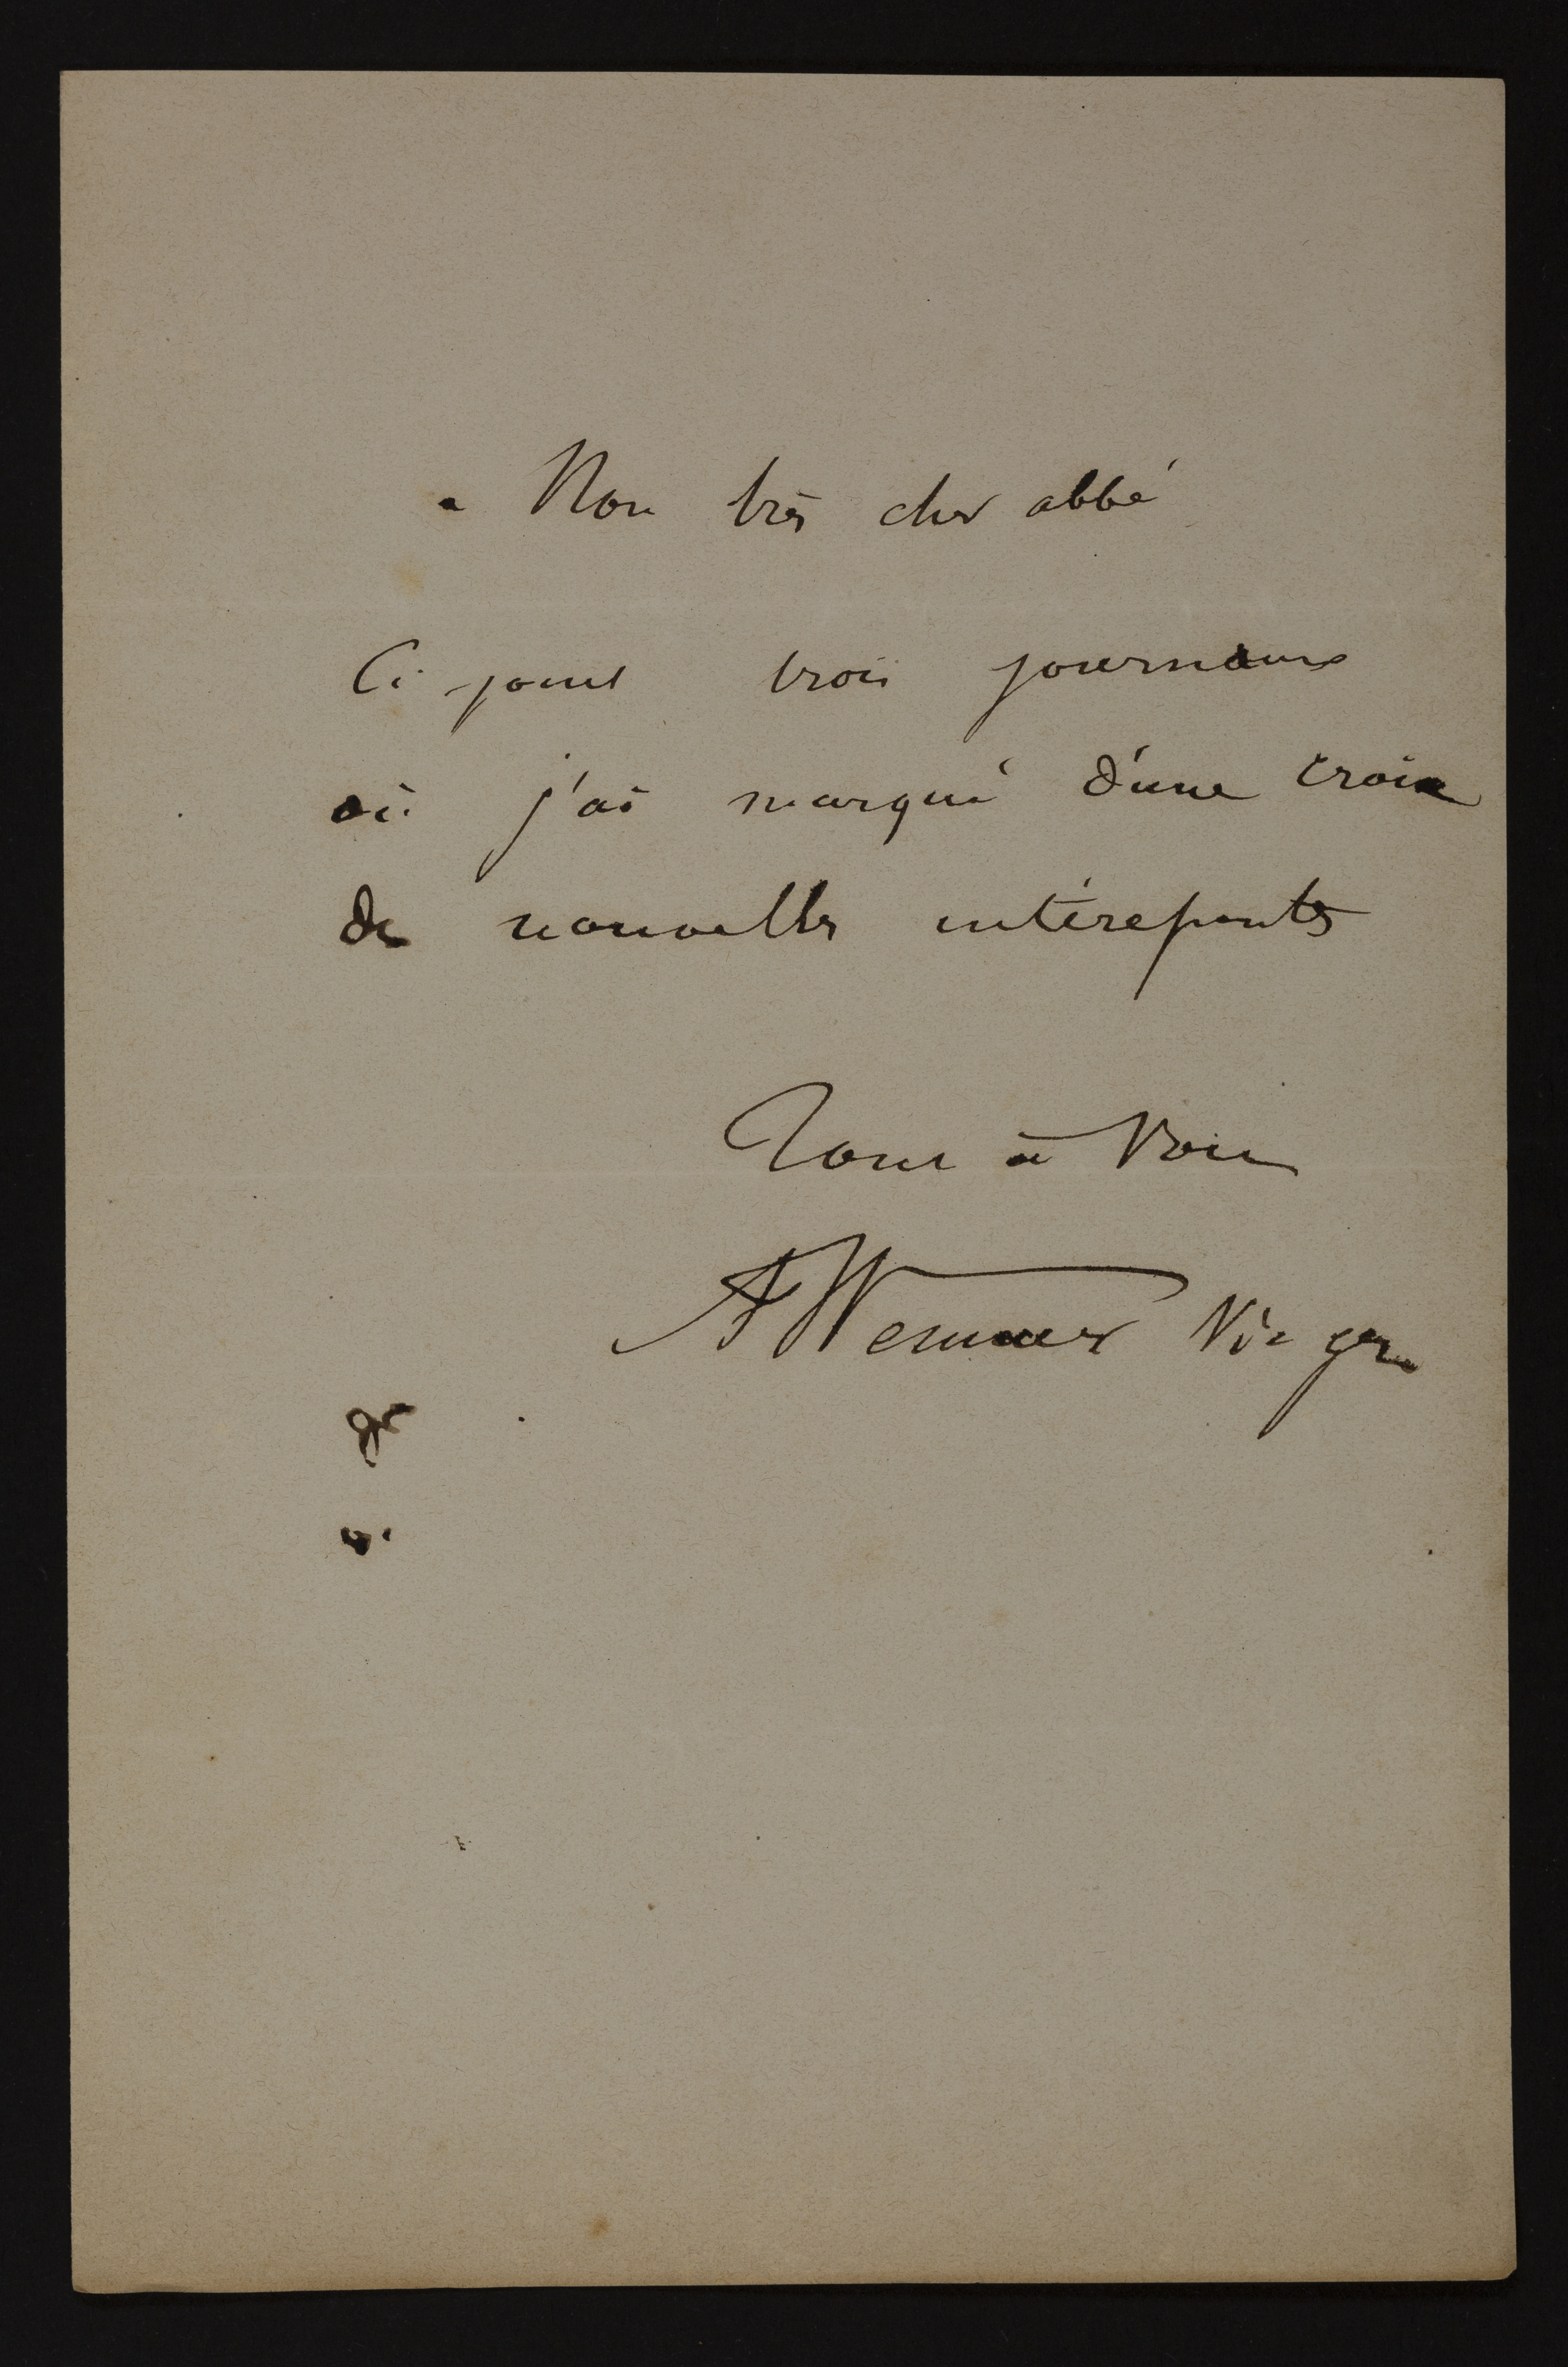 Mon très cher abbé
Ci-joint trois journaux
où j'ai marqué d'une croix
des nouvelles intéressantes
Tout à Vous
Vic gen